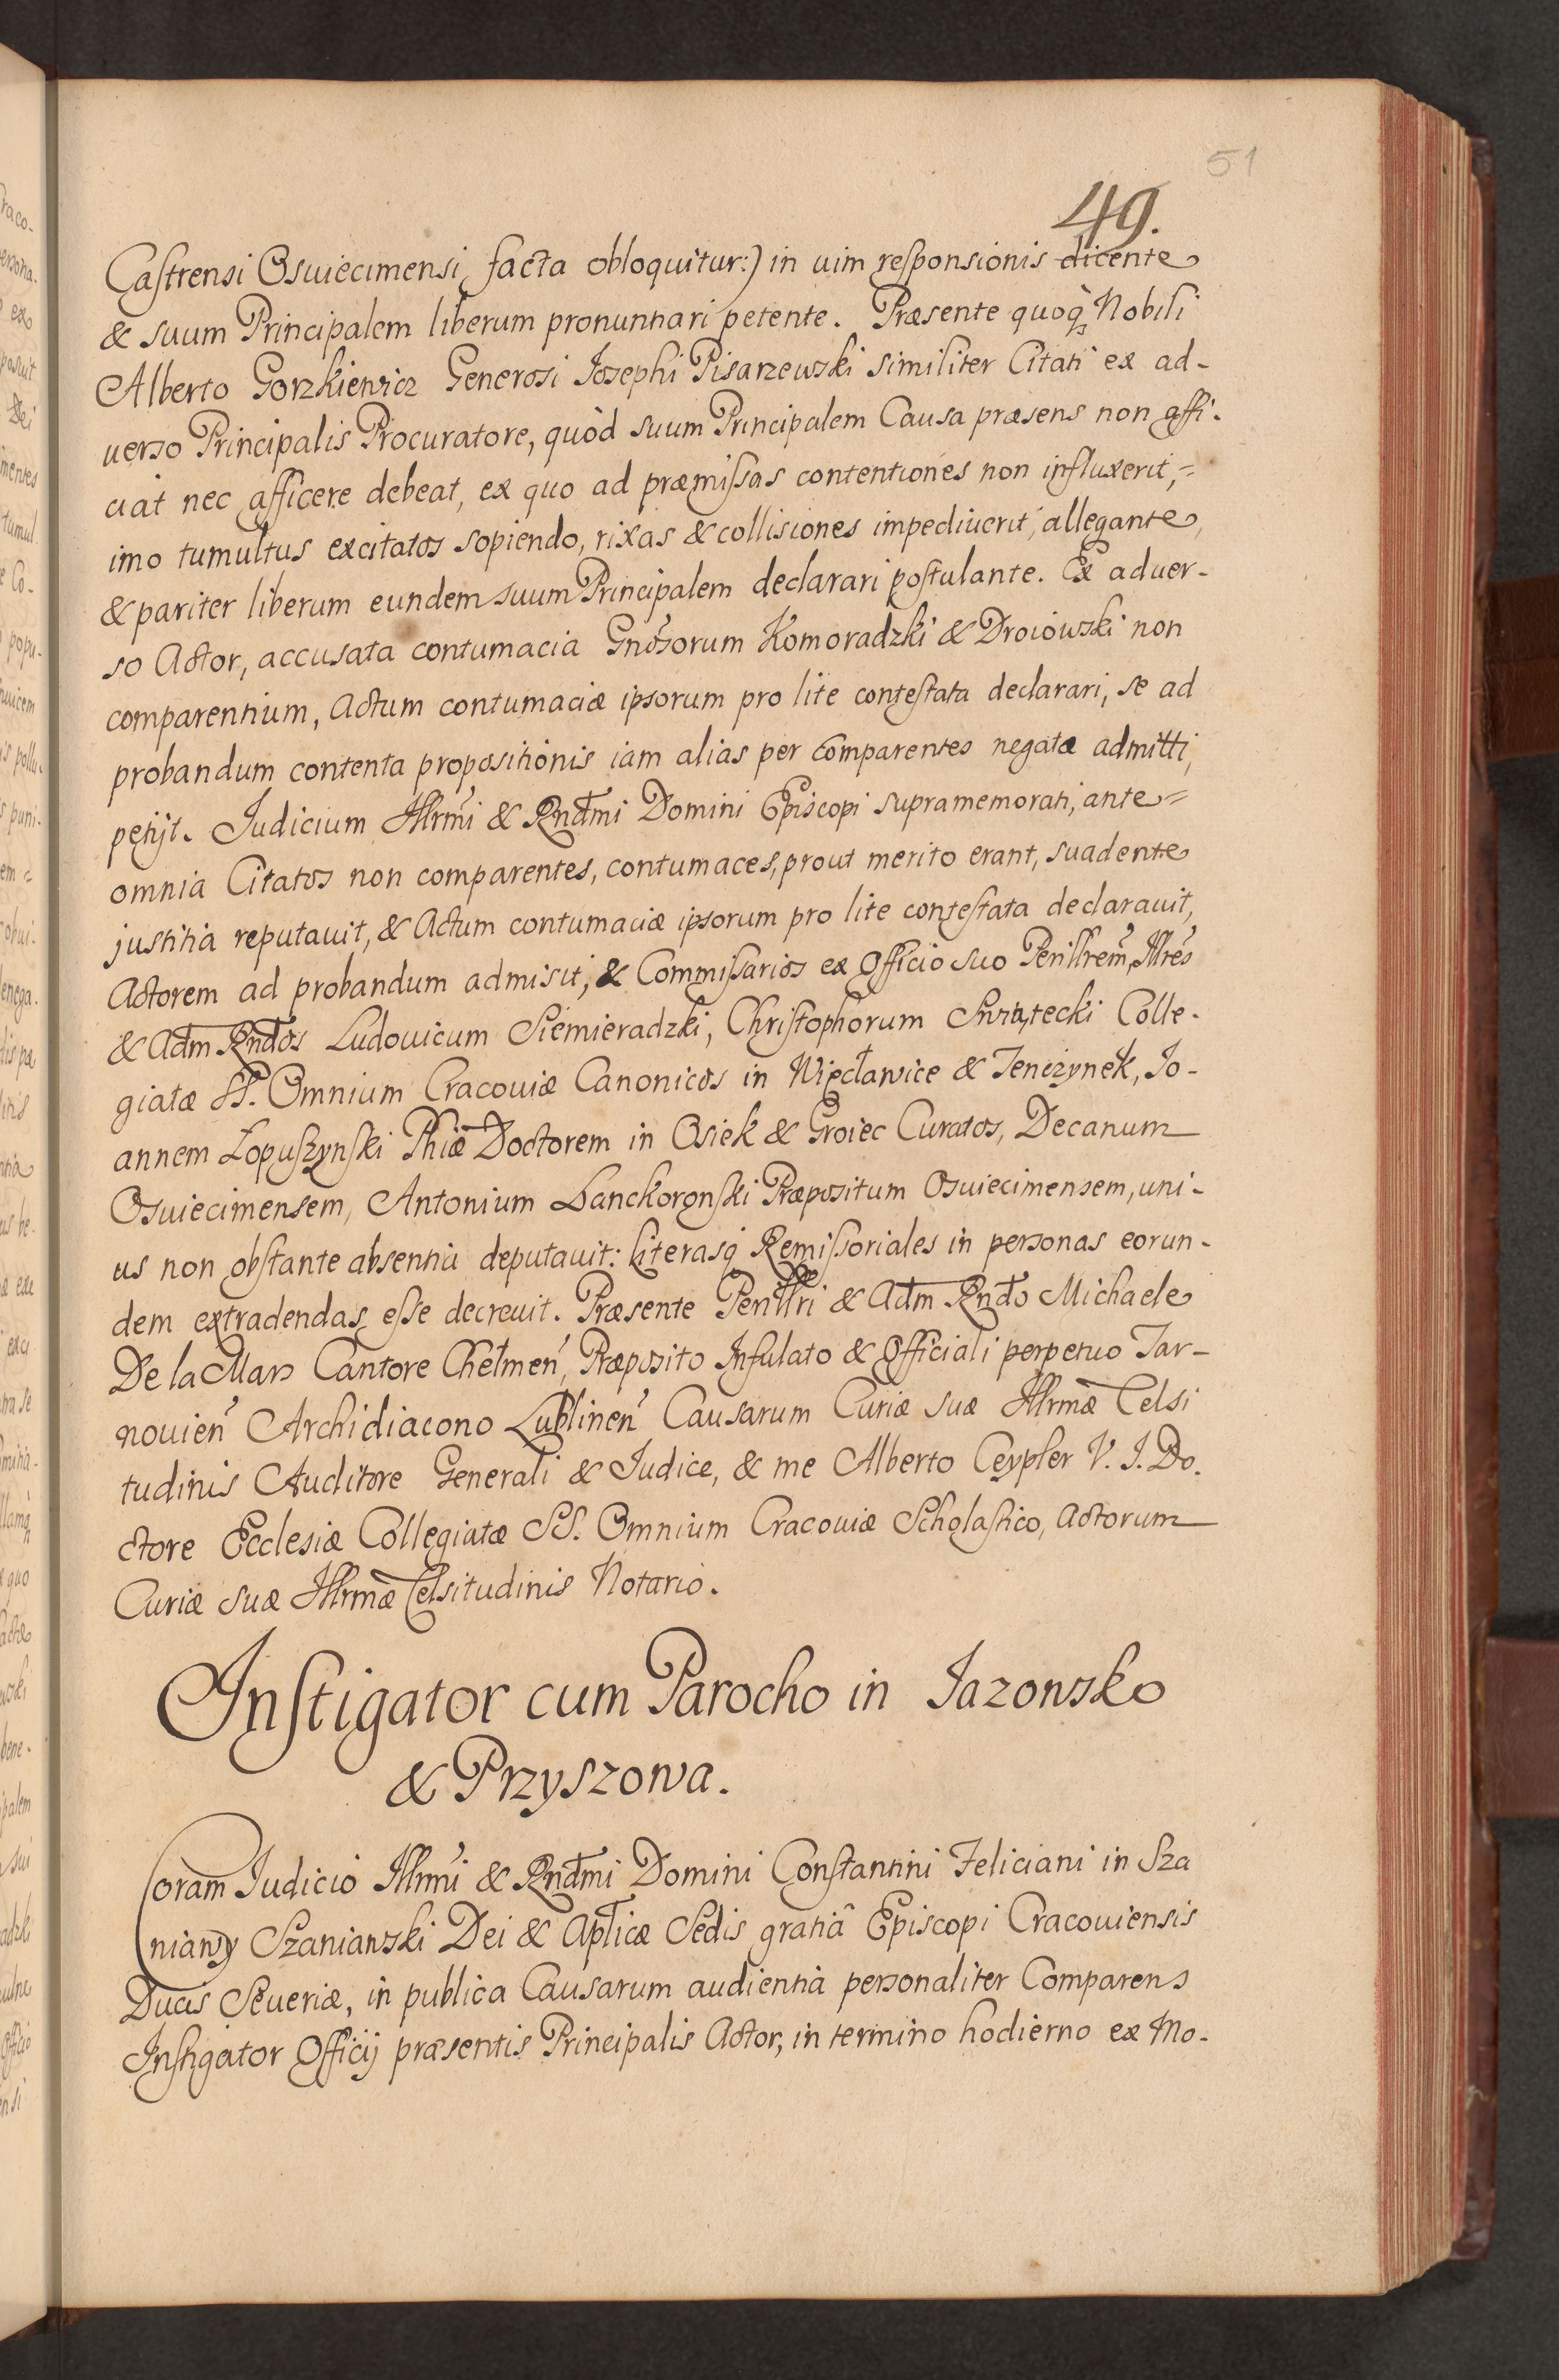 51
49.
Castrensi Osuiecimensi facta obloquitur:) in uim responsionis dicente
& suum Principalem liberum pronuntiari petente. Præsente quoq; Nobili
Alberto Gorzkiewicz Generosi Josephi Pisarzewski similiter Citati ex ad-
uerso Principalis Procuratore, quòd suum Principalem Causa præsens non affi-
ciat nec afficere debeat, ex quo ad præmissas contentiones non influxerit,=
imo tumultus excitatos sopiendo, rixas & collisiones impediuerit, allegante,
& pariter liberum eundem suum Principalem declarari postulante. Ex aduer-
so Actor, accusata contumacia Gnosorum Komoradzki & Droiowski non
comparentium, Actum contumaciæ ipsorum pro lite contestata declarari, se ad
probandum contenta propositionis iam alias per comparentes negatæ admitti,
petijt. Judicium Illrmi & Rndmi Domini Episcopi supramemorati, ante=
omnia Citatos non comparentes, contumaces, prout merito erant, suadente
justitia reputauit, & Actum contumaciæ ipsorum pro lite contestata declarauit,
Actorem ad probandum admisit, & Commissarios ex Officio suo Perillrem, Illres
& Adm Rndos Ludouicum Siemieradzki, Christophorum Swiątecki Colle-
giatæ SS. Omnium Cracouiæ Canonicos in Więcławice & Tenczynek, Jo-
annem Łopuszynski Phiæ Doctorem in Osiek & Groiec Curatos, Decanum
Osuiecimensem, Antonium Lanckoronski Præpositum Osuiecimensem, uni-
us non obstante absentia deputauit: Literasq; Remissoriales in personas eorun-
dem extradendas esse decreuit. Præsente Perillri & Adm Rndo Michaele
De la Mars Cantore Chełmen, Præposito Infulato & Officiali perpetuo Tar-
nouien Archidiacono Lublinen Causarum Curiæ suæ Illrmæ Celsi
tudinis Auditore Generali & Judice, & me Alberto Ceypler V. J. Do-
ctore Ecclesiæ Collegiatæ SS. Omnium Cracouiæ Scholastico, Actorum
Curiæ suæ Illrmæ Celsitudinis Notario.
Instigator cum Parocho in Jazowsko
& Przyszowa.
Coram Judicio Illrmi & Rndmi Domini Constantini Feliciani in Sza
niawy Szaniawski Dei & Aplicæ Sedis gratiâ Episcopi Cracouiensis
Ducis Seueriæ, in publica Causarum audientia personaliter Comparens
Instigator Officij præsentis Principalis Actor, in termino hodierno ex Mo-